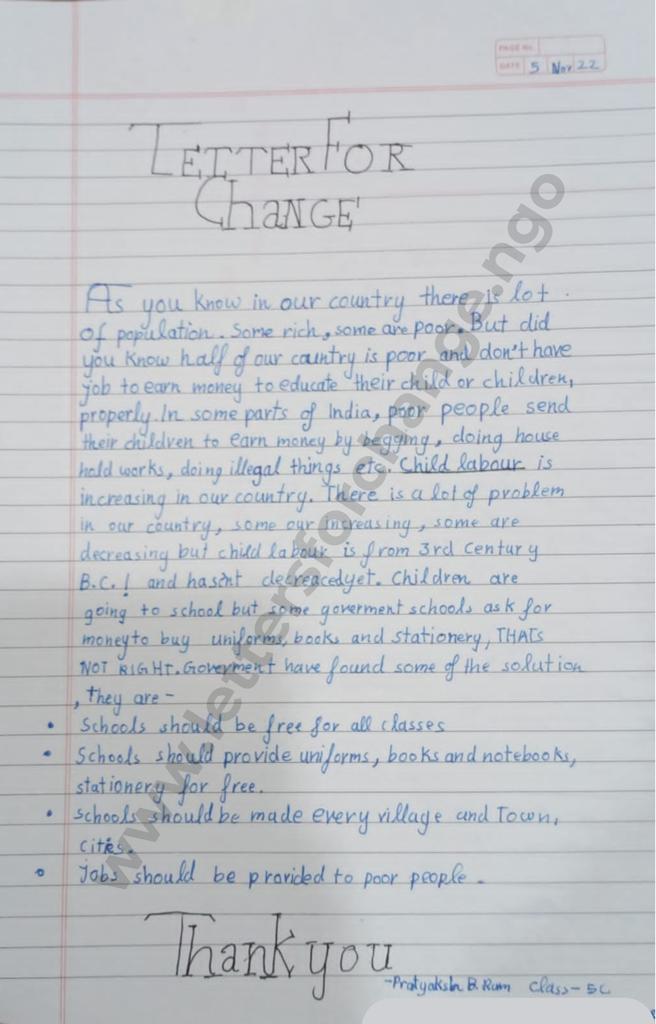 PAGE No.
DATE 5 Nov 22
LETTER FOR
ChANGE'
As you know in our country there is lot .
of population. Some rich, some are poor. But did
you know half of our country is poor and don't have
job to earn money to educate their child or children,
properly. In some parts of India, poor people send
their children to earn money by begging, doing house
hold works, doing illegal things etc. Child labour is
increasing in our country. There is a lot of problem
in our country, some our increasing, some are
decreasing but child labour is from 3rd Century
B.C.! and hasint decreacedyet. Children are
going to school but some goverment schools ask for
moneyto buy uniforms, books and stationery, THATs
NOT RIGHT. Goverment have found some of the solution
, they are -
• Schools should be free for all classes
• Schools should provide uniforms, books and notebooks,
stationery for free.
• Schools should be made every village and Town,
cities.
• Jobs should be provided to poor people.
Thank you
- B. Class - 5C
www.lettersforchange.ngo